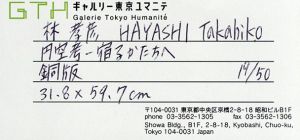 GTH ギャルリー東京ユマニテ
Galerie Tokyo Humanité
林 孝彦 HAYASHI Takahiko
円空考-宿るかたちへ
銅版 14/50
31.8×59.7cm
〒104-0031 東京都中央区京橋2-8-18 昭和ビルB1F
phone 03-3562-1305 fax 03-3562-1306
Showa Bldg., B1F, 2-8-18, Kyobashi, Chuo-ku,
Tokyo 104-0031 Japan